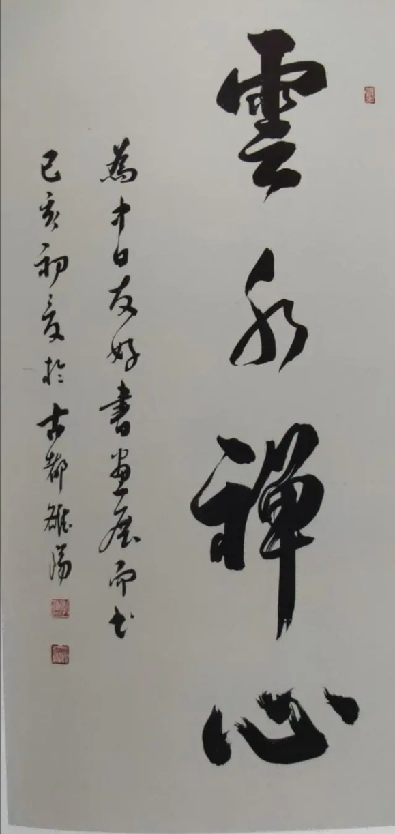 雲水禪心
為中日友好書畫展而書
己亥初夏於古都雒陽